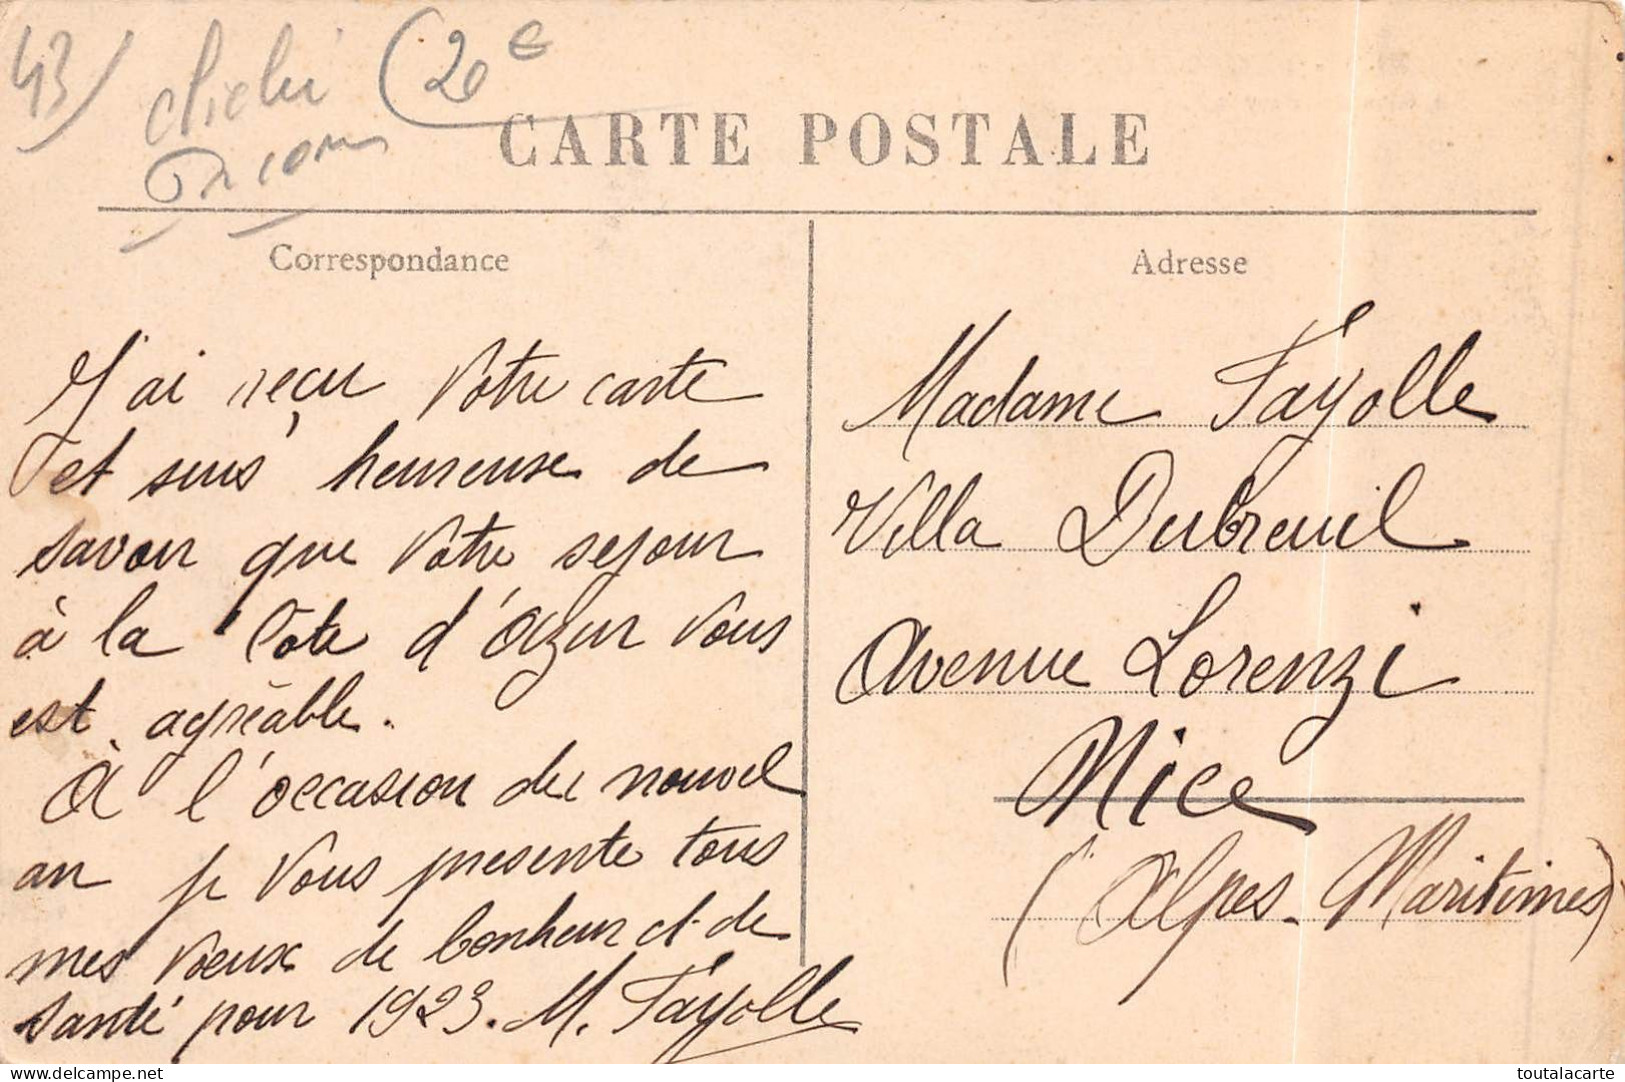 43) cliché (20€
CARTE POSTALE
Correspondance
J'ai reçu votre carte
et suis heureuse de
savoir que votre sejour
à la Côte d'Azur vous
est agréable.
A l'occasion du nouvel
an je vous presente tous
mes vœux de bonheur et de
santé pour 1923. M. Fayolle
Adresse
Madame Fayolle
Villa Dubreuil
Avenue Lorenzi
Nice
(Alpes-Maritimes)
delcampe.net
toutalacarte